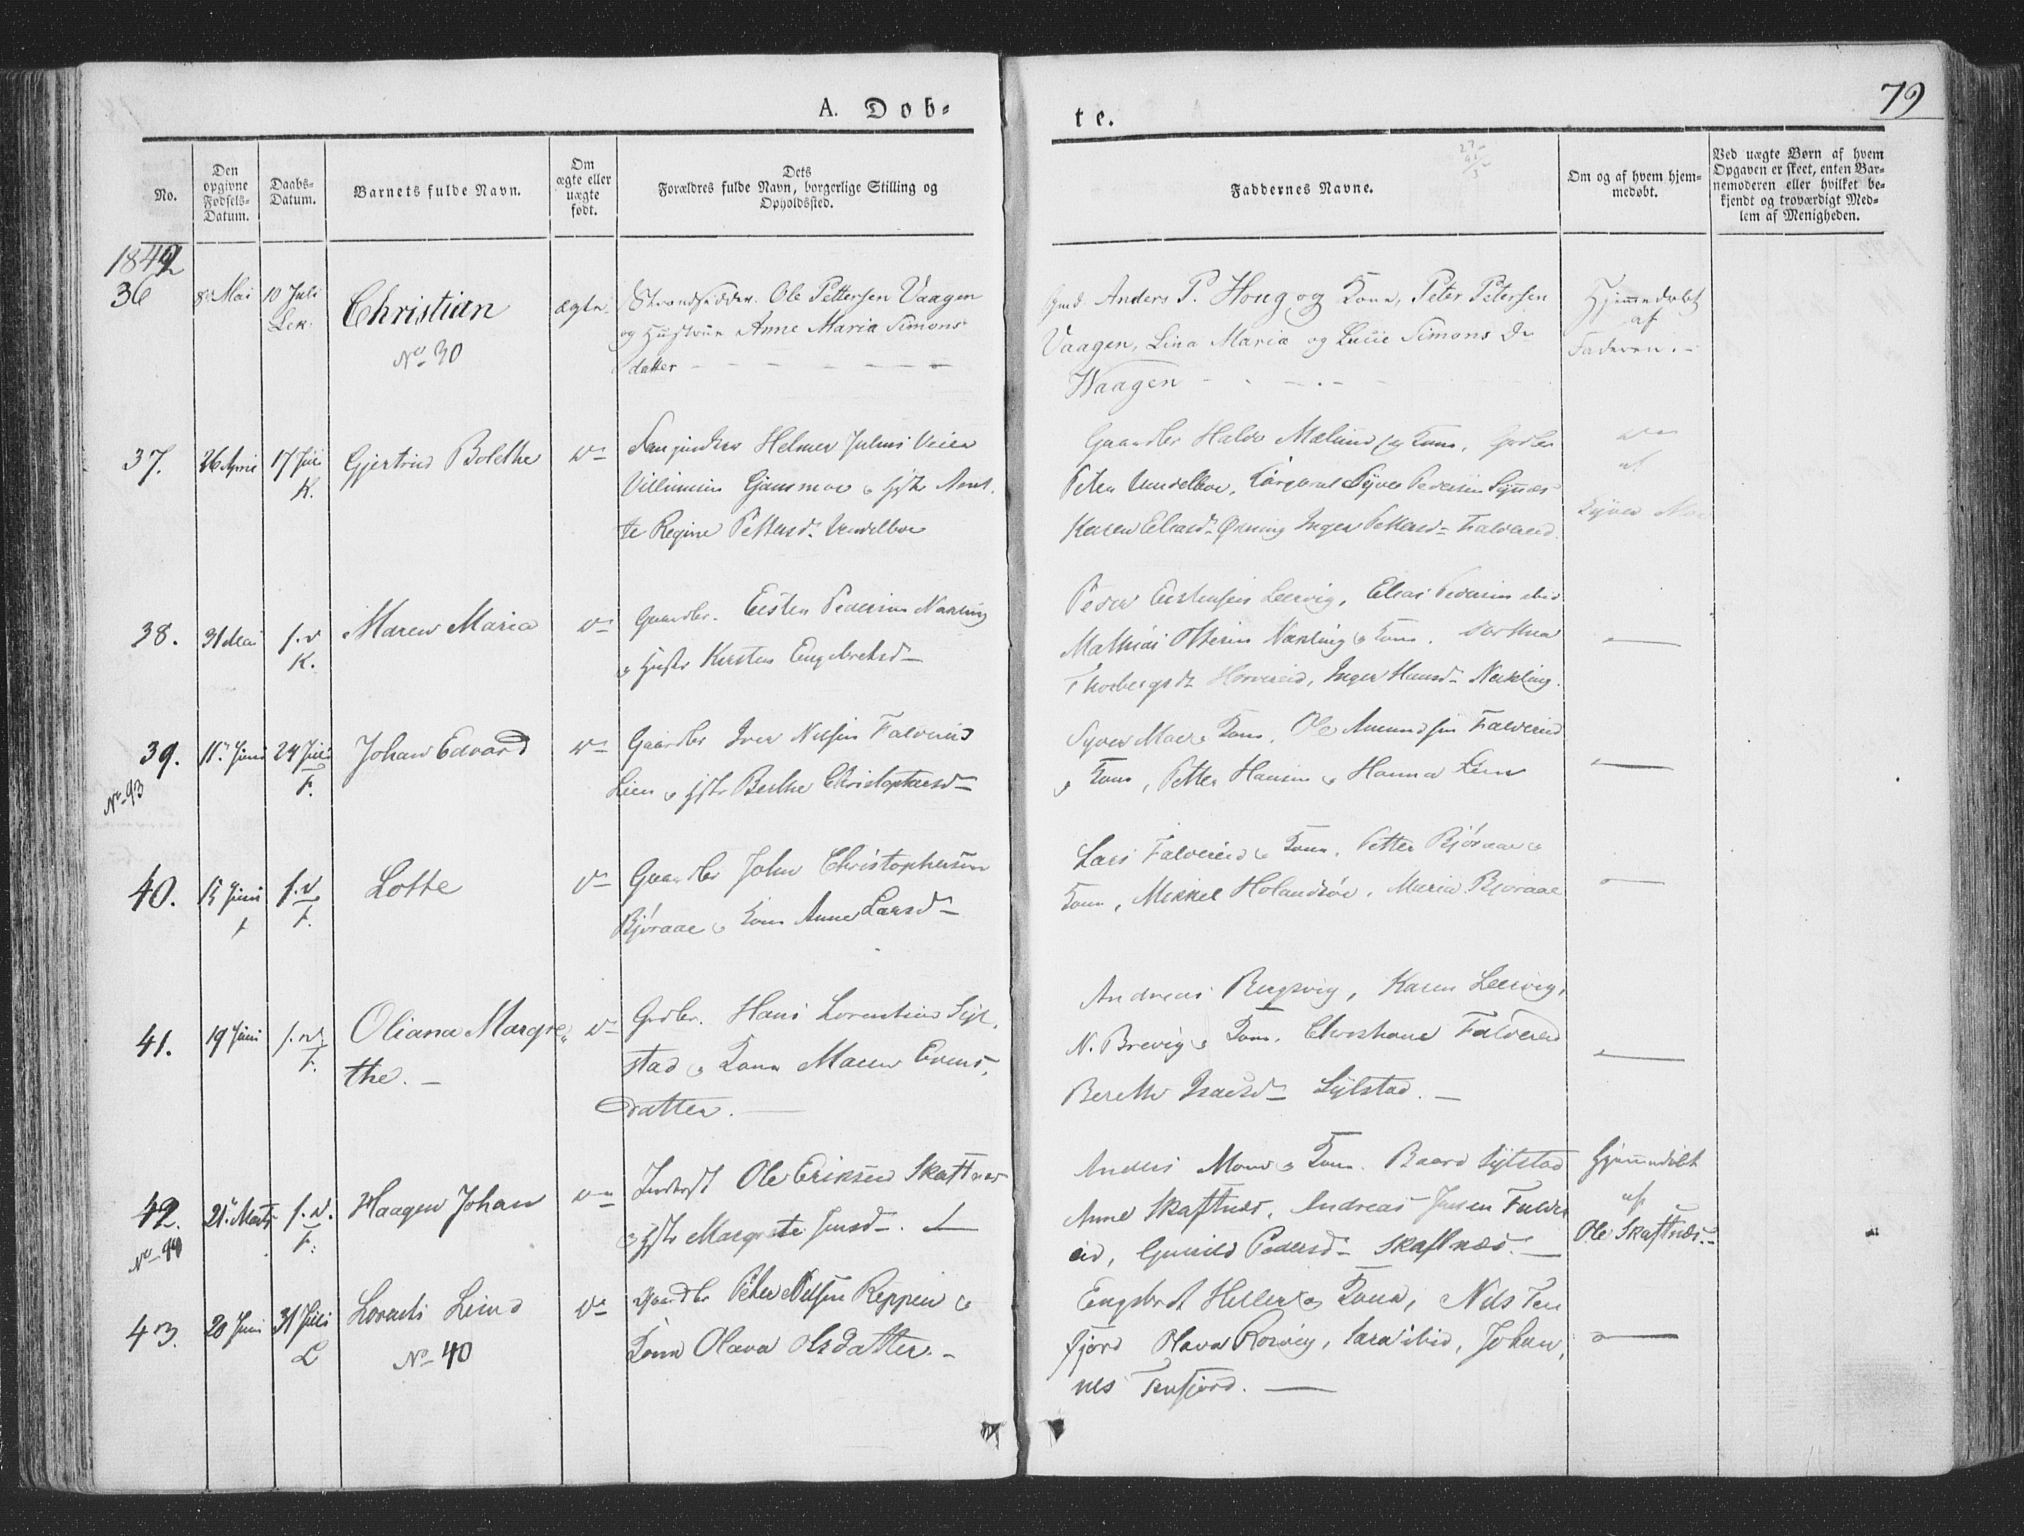 79
A. Döb-
te.
No.
Den opgivne Fødsels-Datum.
Daabs-Datum.
Barnets fulde Navn.
Om ægte eller uægte født.
Dets Forældres fulde Navn, borgerlige Stilling og Opholdssted.
Faddernes Navne.
Om og af hvem hjem-medøbt.
Ved uægte Børn af hvem Opgaven er skeet, enten Bar-nemoderen eller hvilket be-kjendt og troværdigt Med-lem af Menigheden.
1842
36
8 Mai
10 Juli
Lek.
Christian
No 30
ægte
Strandsidder Ole Pettersen Vaagen
og Hustrue Anne Maria Simons
datter
Gmd. Anders P. Hong og Kone, Peter Petersen
Vaagen, Lina Maria og Lucie Simons Dr
Waagen
Hjemmedøbt
af
Faderen.
37.
26 April
17 Juli
K.
Gjertrud Bolethe
do
Helmer Julius Veier
Villumsen
te Regine Pettersd. Vendelboe
Gaardbr Kone,
Peter Vendelboe, Syver Pedersen
Karen Eliasd. Inger Pettersd. Falvereid
do
af
Syver Moe
38.
31 Mai
s. d.
K.
Maren Maria
do
Gaardbr. Eisten Pedersen
Hustr Kirsten Engebretsd
Peder Eistensen Leervig, Elias Pedersen ibid
Mathias Kone. Dorthea
Thorbergsdr Inger Hansd
39.
No 93
11 Juni
24 Juli
F.
Johan Edvard
do
Gaardbr Iver Nilsen Falvereid
Lien Hstr Berthe Christophersd
Syver Moe Kone, Ole Amundsen Falvereid
Kone, Petter Hansen Hanna Lien
40.
15 Juni
s. d.
F.
Lotte
do
Gaardbr John Christophersen
Bjøraae Kone Anne Larsd
Lars Falvereid Kone, Petter Bjøraae
Kone, Mikkel Holandsøe, Maria Bjøraae
41.
19 Juni
s. d.
F.
Oliana Margre-
the.
do
Grdbr. Hans Lorentsen Sylt-
stad Kone Maren Evens-
datter.
Andreas Bergsvig, Karen Leervig,
N. Brevig Kone, Christiane Falvereid
Berethe Isacsd Syltstad.
42.
No 44
21 Marts
s. d.
F.
Haagen Johan
do
Inderst Ole Eriksen Skaftnes
Hstr Margrete Jensd.
Anders Moen Kone. Baard Syltstad
Anne Skaftnes, Andreas Jensen Falver
eid, Gunild Pedersd Skaftnæs.
Hjemmedøbt
af
Ole Skaftnæs
43.
20 Juni
31 Juli
L
Lorents Leind
No 40
do
Gaardbr Peter Nilsen Reppen
Kone Olava Olsdatter.
Engebret Heller Kone, Nils Ten
fjord Olava Rørvig, Sara ibid, Johan-
nes Tenfjord.